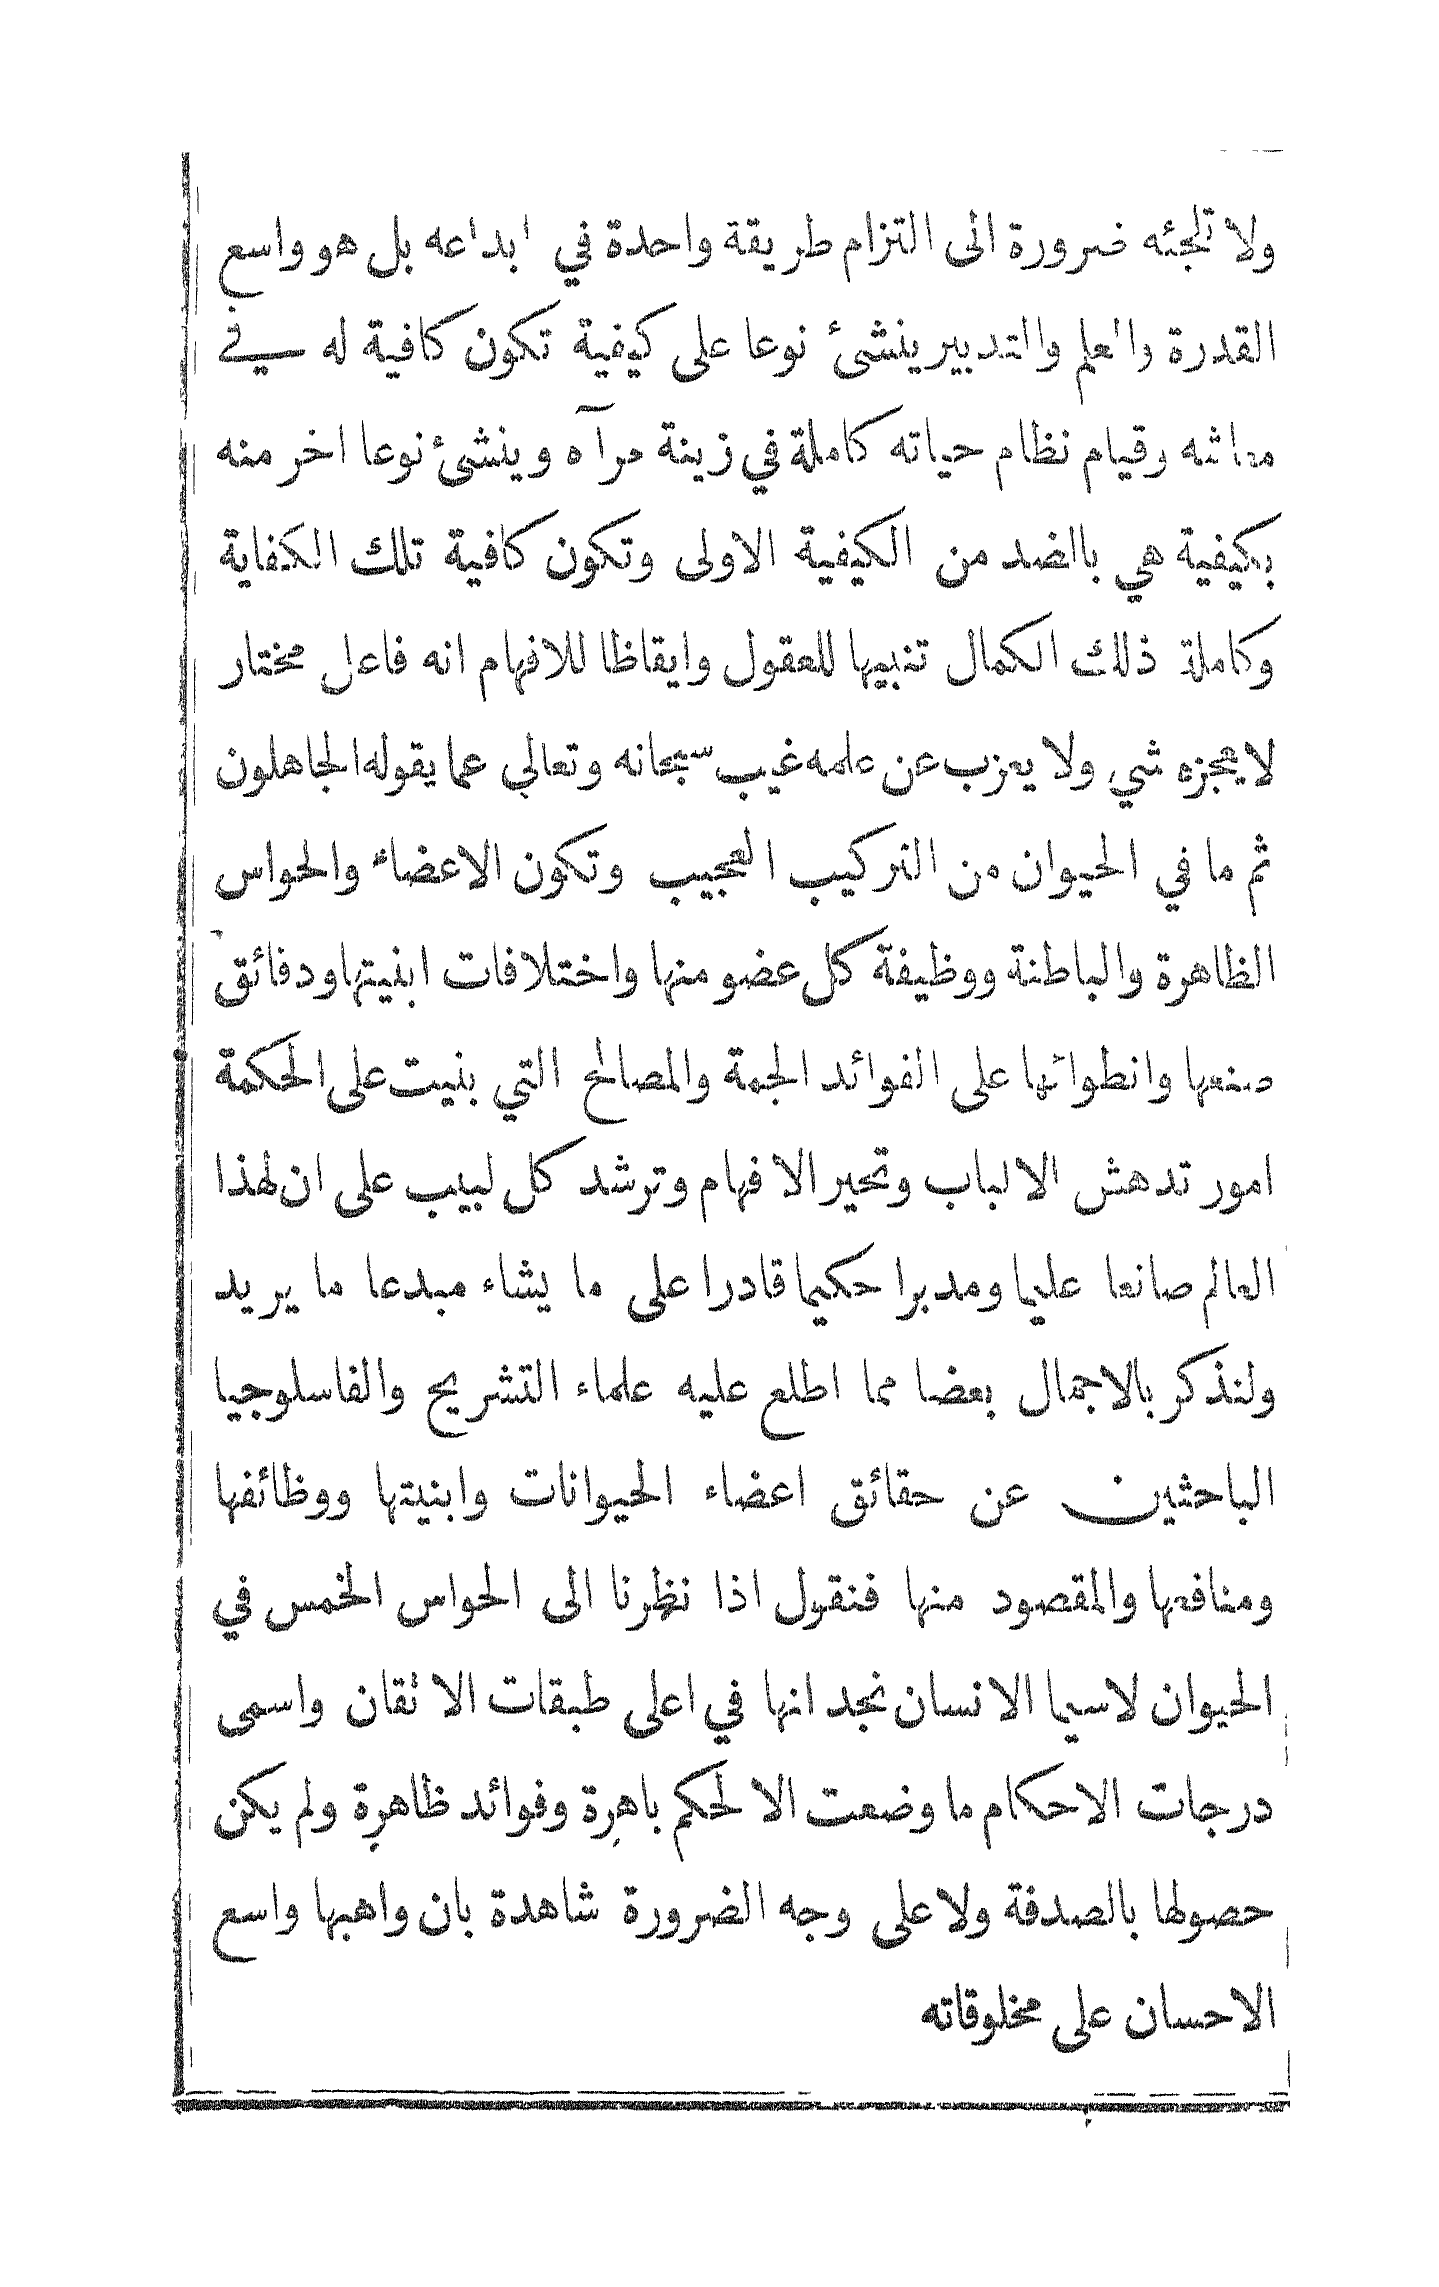 ولا تلجئه ضرورة الى التزام طريقة واحدة في ابداعه بل هو واسع
القدرة والعلم والتدبير ينشئ نوعا على كيفية تكون كافية له في
معاشه وقيام نظام حياته كاملة في زينة مرآه وينشئ نوعا اخر منه
بكيفية هي بالضد من الكيفية الاولى وتكون كافية تلك الكفاية
وكاملة ذلك الكمال تنبيها للعقول وايقاظا للافهام انه فاعل مختار
لا يعجزه شي ولا يعزب عن علمه غيب سبحانه وتعالي عما يقوله الجاهلون
ثم ما في الحيوان من التركيب العجيب وتكون الاعضاء والحواس
الظاهرة والباطنة ووظيفة كل عضو منها واختلافات ابنيتها ودقائق
صنعها وانطوائها على الفوائد الجمة والمصالح التي بنيت على الحكمة
امور تدهش الالباب وتحير الافهام وترشد كل لبيب على ان لهذا
العالم صانعا عليما ومدبرا حكيما قادرا على ما يشاء مبدعا ما يريد
ولنذكر بالاجمال بعضا مما اطلع عليه علماء التشريح والفاسلوجيا
الباحثين عن حقائق اعضاء الحيوانات وابنيتها ووظائفها
ومنافعها والمقصود منها فنقول اذا نظرنا الى الحواس الخمس في
الحيوان لاسيما الانسان نجد انها في اعلى طبقات الاتقان واسمى
درجات الاحكام ما وضعت الا لحكم باهرة وفوائد ظاهرة ولم يكن
حصولها بالصدفة ولا على وجه الضرورة شاهدة بان واهبها واسع
الاحسان على مخلوقاته